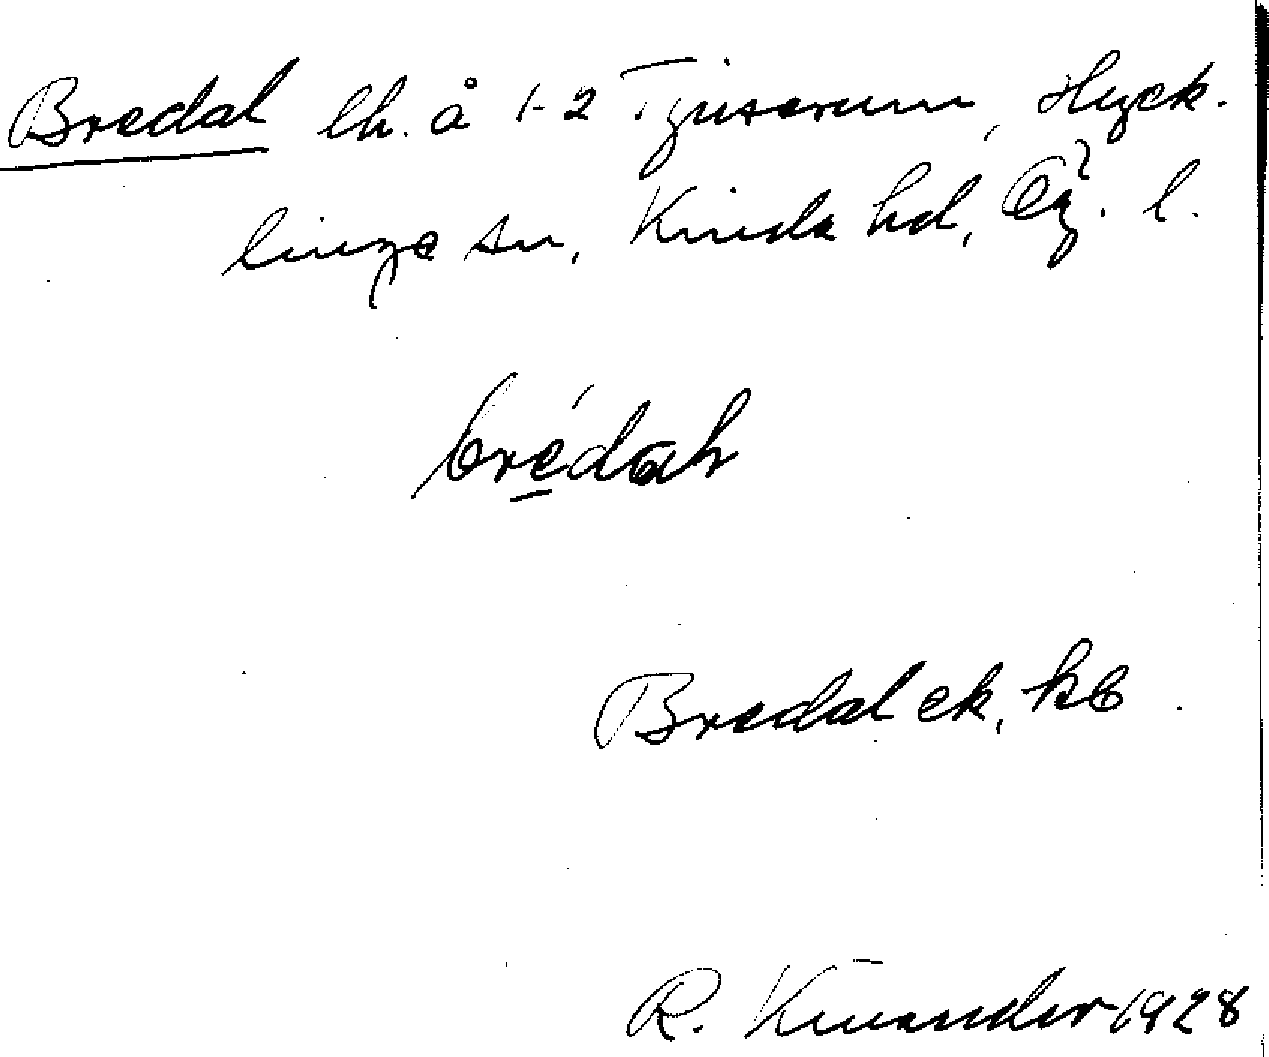 Bredal lh. å 1-2 Tjuserum, Hyck-
linge sn, Kinda hd, Ög. l.
brédal
Bredal ek, kb.
R. Kinander 1928